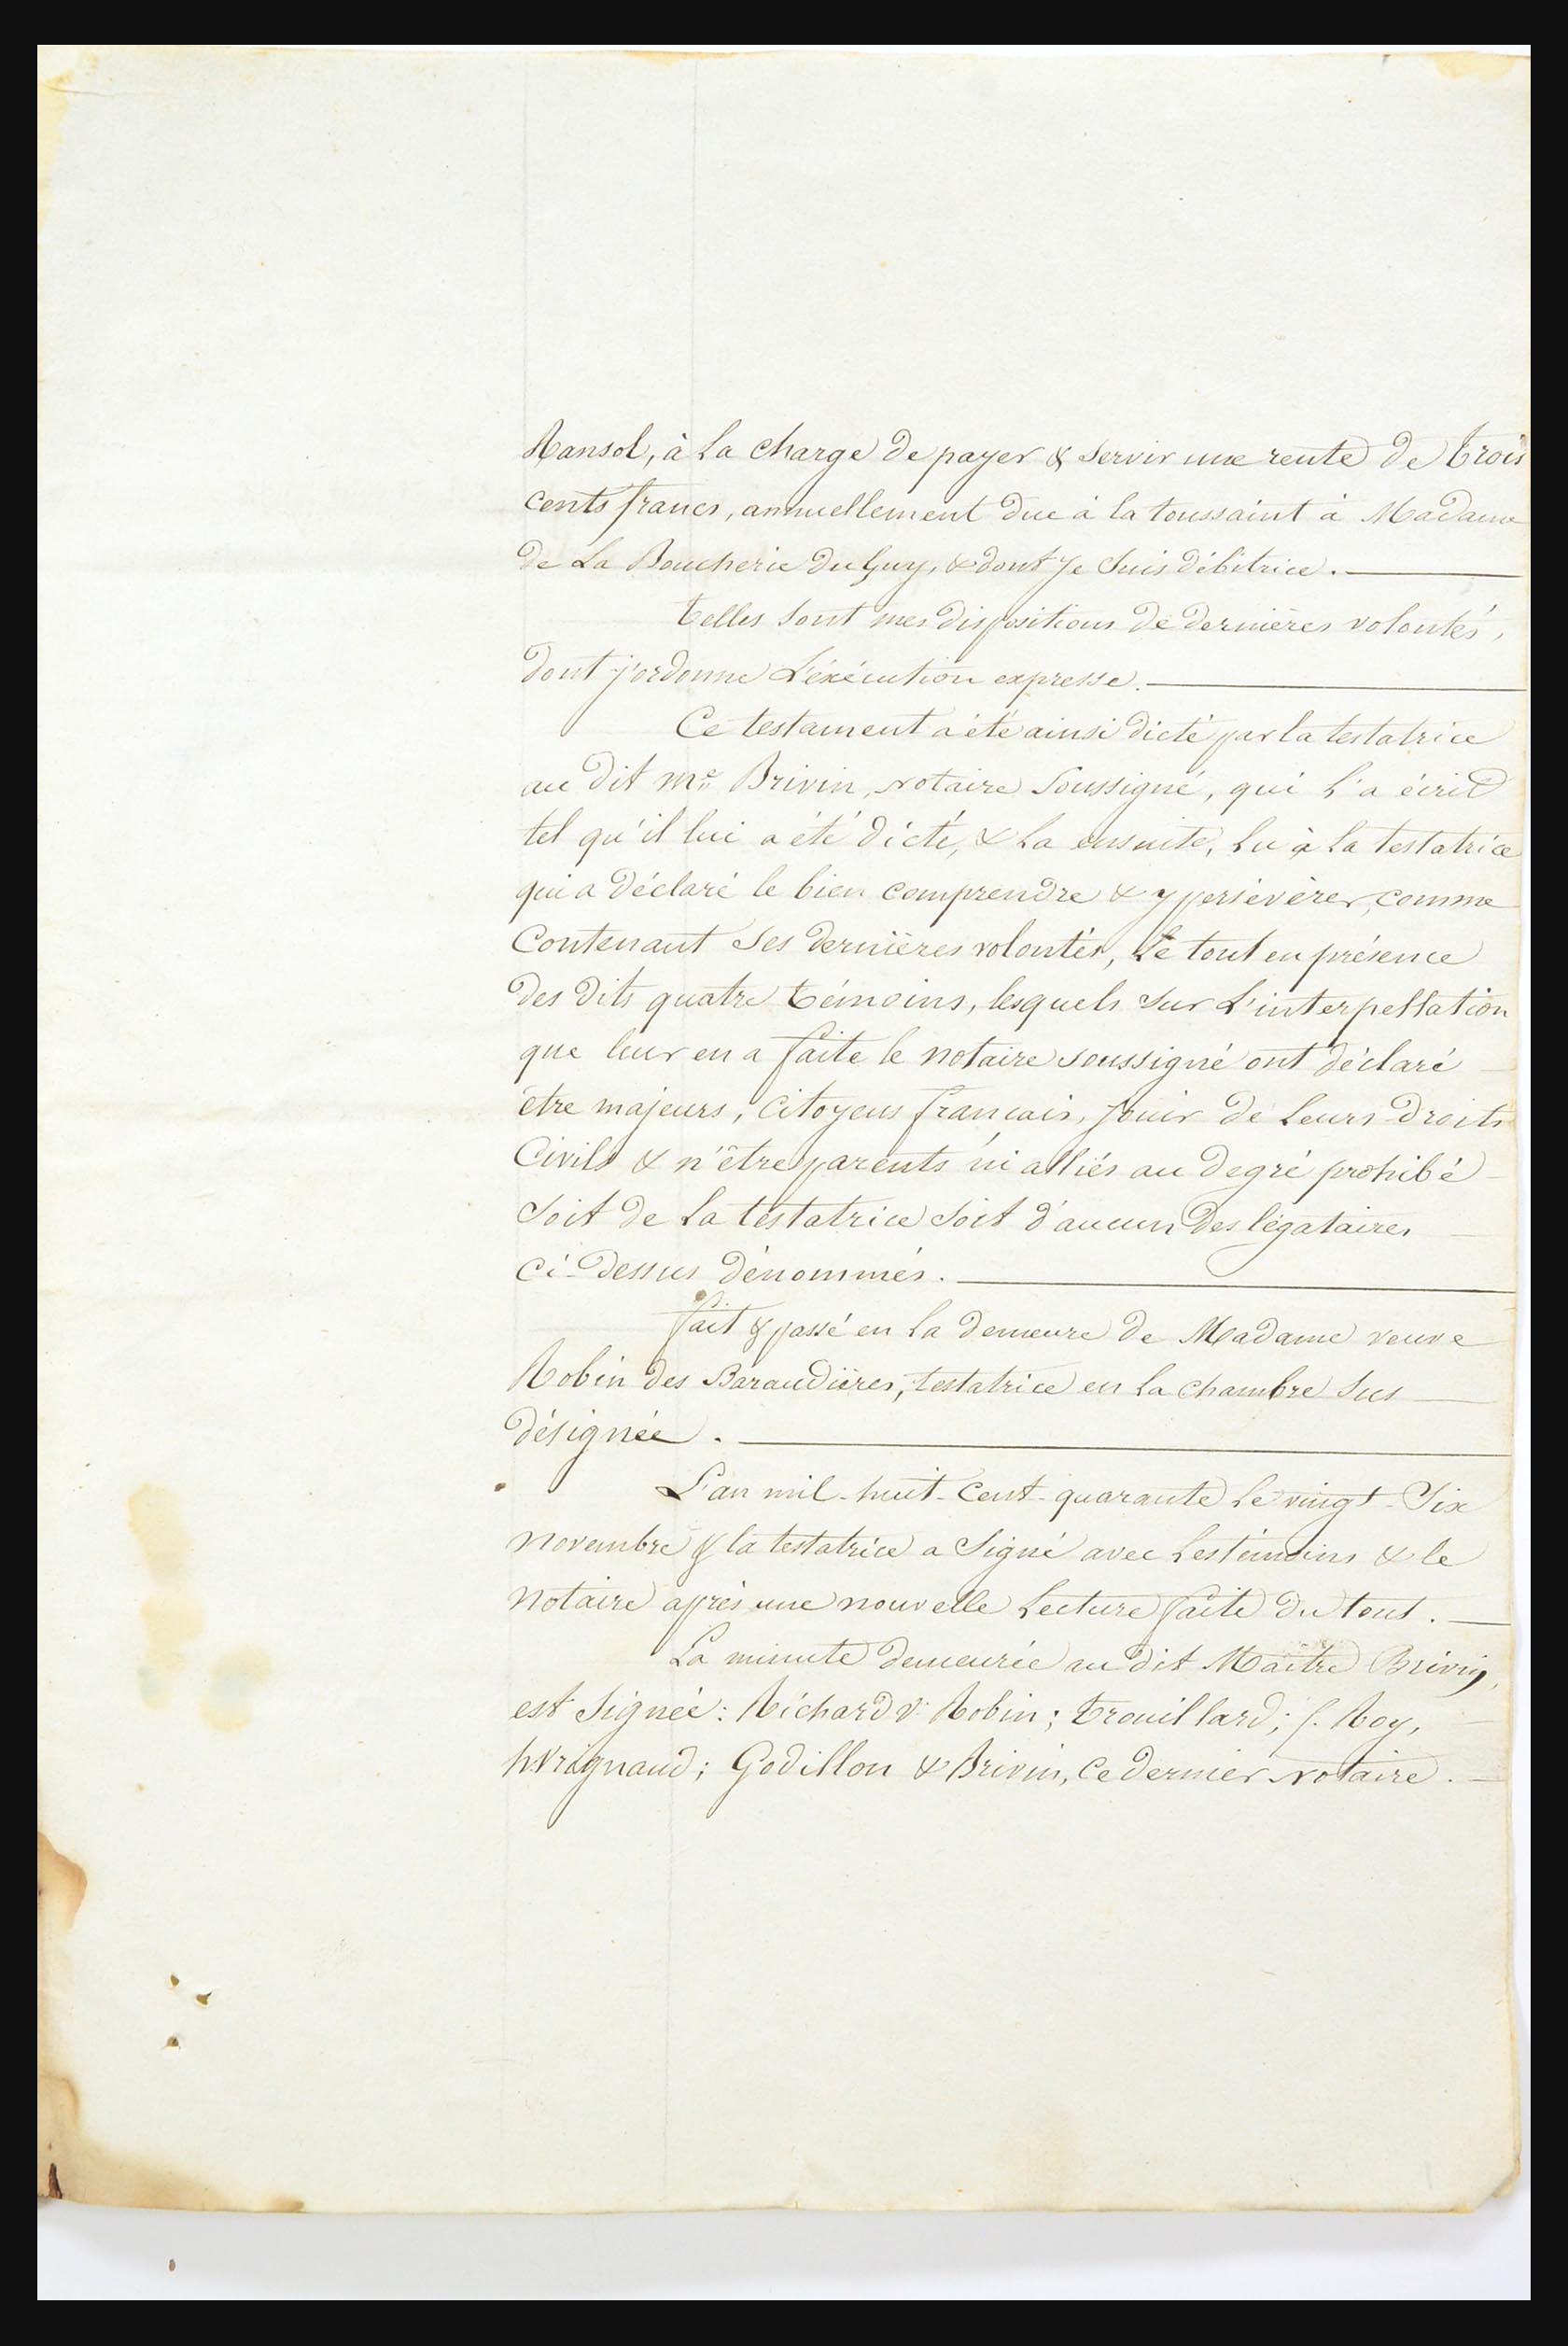 Ransol, à la charge de payer & servir une rente de trois
cents francs, annuellement due à la toussaint à Madame
de La Boucherie du Guy, & dont je suis débitrice.
telles sont mes dispositions de dernières volontés,
dont j'ordonne l'éxécution expresse.
Ce testament a été ainsi dicté par la testatrice
au dit Me Brivin, notaire soussigné, qui l'a écrit
tel qu'il lui a été dicté, & la ensuite, lu à la testatrice
qui a déclaré le bien comprendre & y persévérer, comme
contenant ses dernières volontés, le tout en présence
des dits quatre témoins, lesquels sur l'interpellation
que leur en a faite le notaire soussigné ont déclaré
être majeurs, citoyens français, jouir de leurs droits
civils & n'être parents ni alliés au degré prohibé
soit de la testatrice soit d'aucun des légataires
ci-dessus dénommés.
fait & passé en la demeure de Madame veuve
Robin des Baraudières, testatrice en la chambre sus
désignée.
L'an mil-huit-cent-quarante le vingt-six
novembre & la testatrice a signé avec les témoins & le
notaire après une nouvelle lecture faite du tout.
La minute demeurée au dit Maître Brivin,
est signée: Richard Ve Robin; Trouillard; f. Roy,
hVrignaud; Godillon & Brivin, ce dernier notaire.